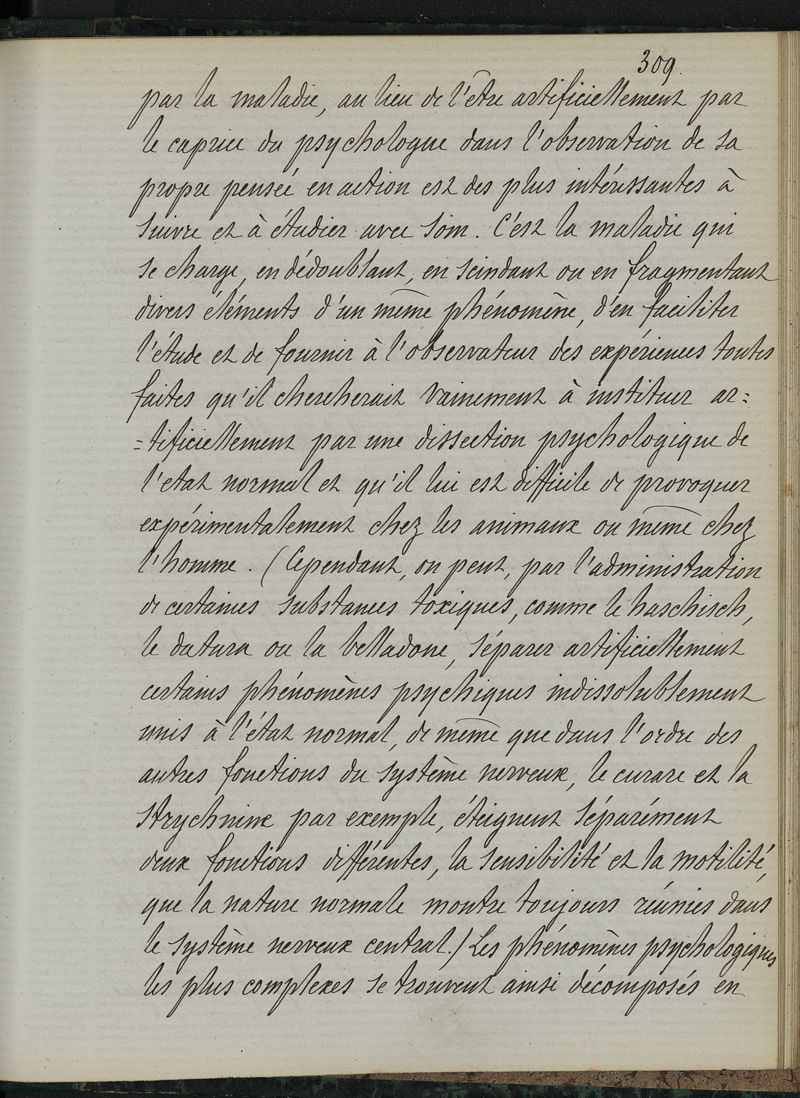 309.
par la maladie, au lieu de l'être artificiellement par
le caprice du psychologue dans l'observation de sa
propre pensée en action est des plus intéressantes à
suivre et à étudier avec soin. C'est la maladie qui
se charge, en dédoublant, en scindant ou en fragmentant
divers éléments d'un même phénomène, d'en faciliter
l'étude et de fournir à l'observateur des expériences toutes
faites qu'il chercherait vainement à instituer ar=
=tificiellement par une dissection psychologique de
l'etat normal et qu'il lui est difficile de provoquer
expérimentalement chez les animaux ou même chez
l'homme. (Cependant, on peut, par l'administration
de certaines substances toxiques, comme le haschisch,
le datura ou la belladone, séparer artificiellement
certains phénomènes psychiques indissolublement
unis à l'état normal, de même que dans l'ordre des
autres fonctions du système nerveux, le curare et la
strychnine par exemple, éteignent séparément
deux fonctions différentes, la sensibilité et la motilité,
que la nature normale montre toujours réunies dans
le système nerveux central.) Les phénomènes psychologiques
les plus complexes se trouvent ainsi décomposés en